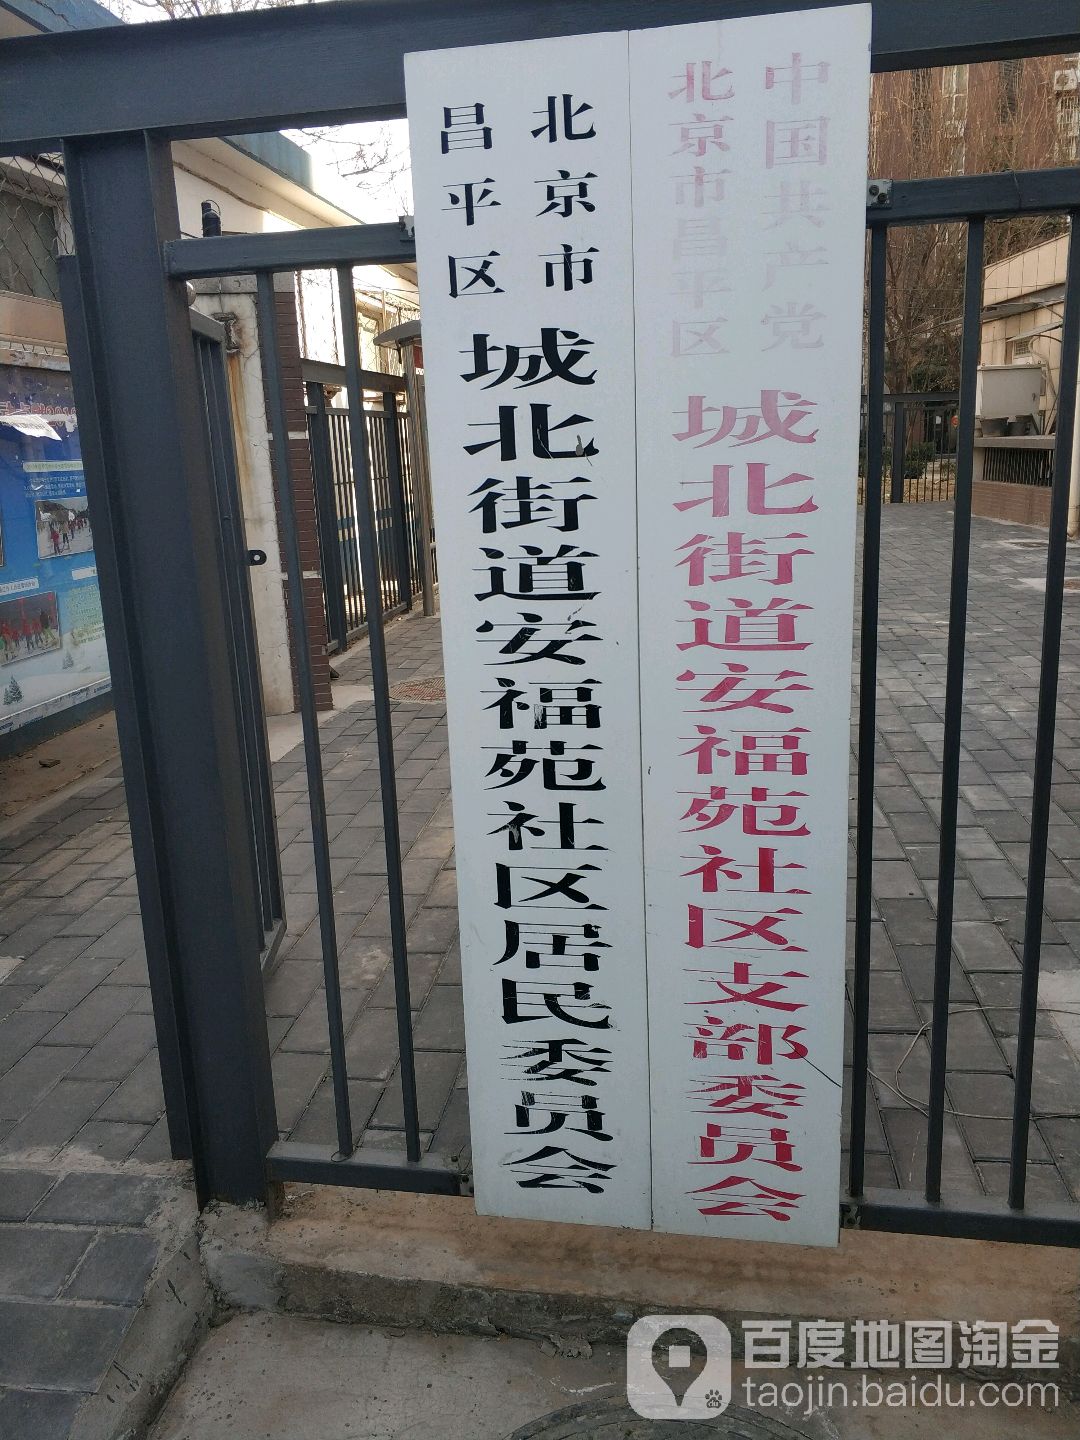 中国共产党
北京市昌平区
城北街道安福苑社区支部委员会
北京市
昌平区
城北街道安福苑社区居民委员会
百度地图淘金
taojin.baidu.com